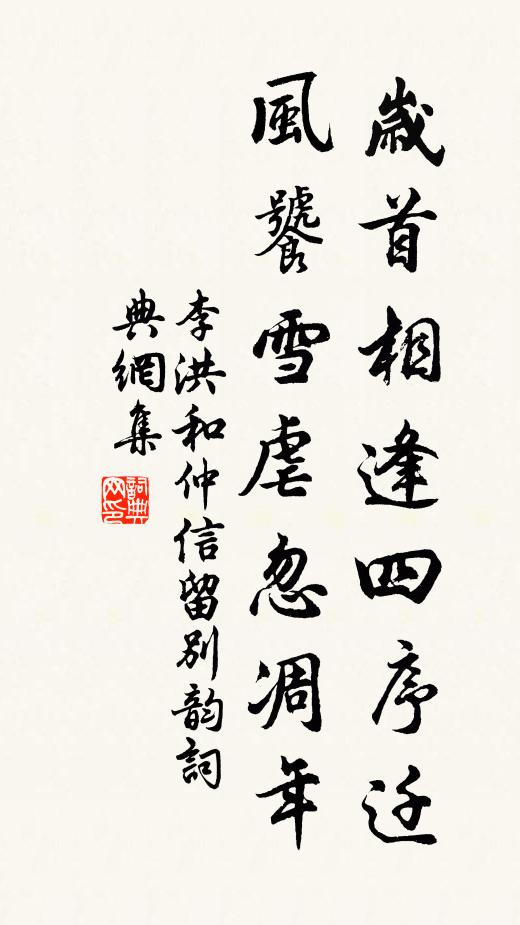 歲首相逢四序迁
風饕雪虐忽凋年
李洪和仲信留别韵詞
典網集
詞典网印